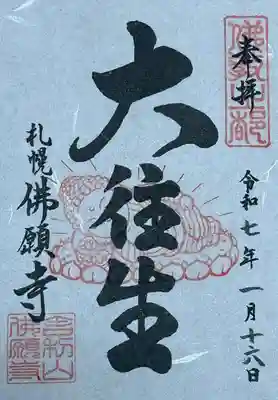 奉拝
令和七年一月十六日
大往生
札幌佛願寺